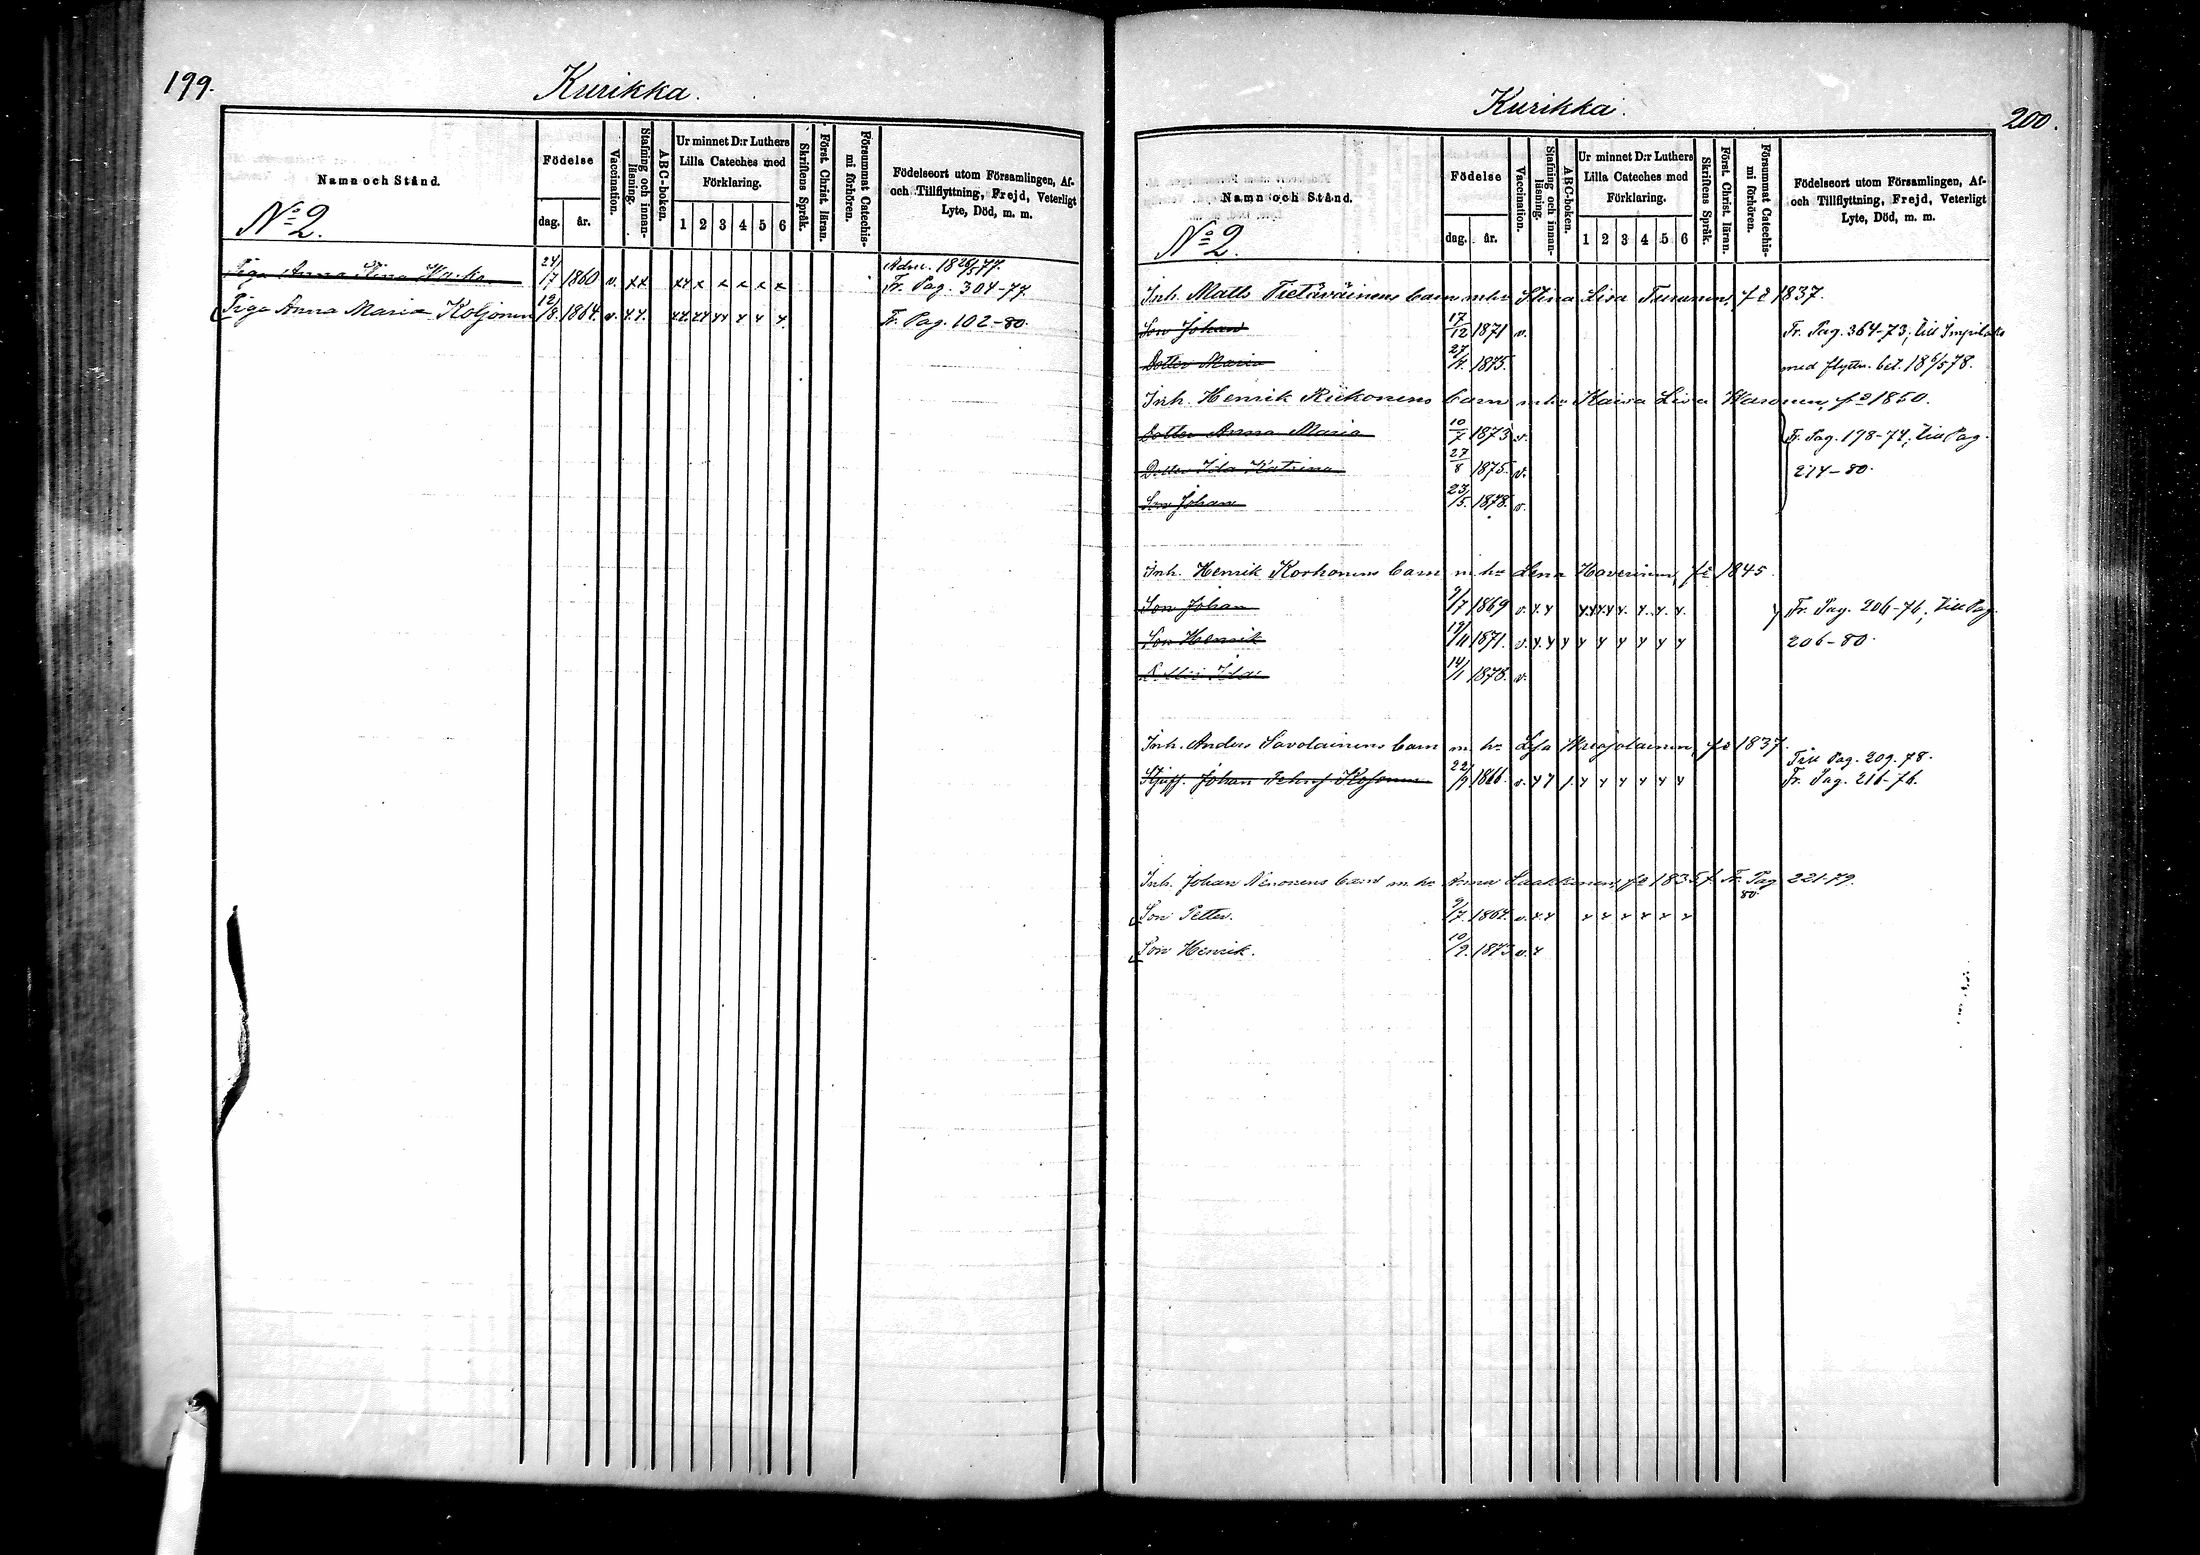 199.
Kurikka.
Namn och Stånd.
Födelse
dag.
år.
Vaccination.
Stafning och innanläsning.
ABC-boken.
Ur minnet D:r Luthers
Lilla Cateches med
Förklaring.
1 2 3 4 5 6
Skriftens Språk.
Först. Christ. läran.
Försummat Catechismi förhören.
Födelseort utom Församlingen, Af-
och Tillflyttning, Frejd, Veterligt
Lyte, Död, m. m.
No 2.
Adm. 18 26/5 77.
Piga Anna Stina 24/7 1860 v. x x x x x x x x x Fr. Pag. 304-77.
Piga Anna Maria Koljonen 12/8. 1864. v. Fr. Pag. 102-80.
Kurikka.
200.
Namn och Stånd.
Födelse
dag.
år.
Vaccination.
Stafning och innanläsning.
ABC-boken.
Ur minnet D:r Luthers
Lilla Cateches med
Förklaring.
1 2 3 4 5 6
Skriftens Språk.
Först. Christ. läran.
Försummat Catechismi förhören.
Födelseort utom Församlingen, Af-
och Tillflyttning, Frejd, Veterligt
Lyte, Död, m. m.
No 2.
Inh. Matts Tietäväinens barn m. hu Stina Lisa Turunen, f. 1837.
Son Johan 17/12 1871 v. Fr. Pag. 364-73; till Impilaks
Dotter Maria 27/4. 1875. med flyttn. bet. 18 6/5 78.
Inh. Henrik Riekonens barn m. hu Kaisa Lisa f. 1850.
Dotter Anna Maria 10/7 1873 v. Fr. Pag. 198-74; till Pag.
Dotter Ida Katrina 27/8 1875. v. 214-80.
Son Johan 23/5. 1878. v.
Inh. Henrik Korhonens barn m. hu Lena Hoverinen, f. 1845.
Son Johan 9/7 1869 v. Fr. Pag. 206-76; till Pag.
Son Henrik 19/11 1871. v. 206-80.
Dotter Ida 14/1 1878. v.
Inh. Anders Savolainens barn m. hu f. 1837.
Till Pag. 209-78.
Styfs. Johan 22/9 1866. v. Fr. Pag. 216-76.
Inh. Johan Nenonens barn m. hu Anna Laakkonen, f. 1835. Fr. Pag. 221-79.
80.
Son Petter. 9/7. 1864. v.
Son Henrik. 10/9. 1873 v.